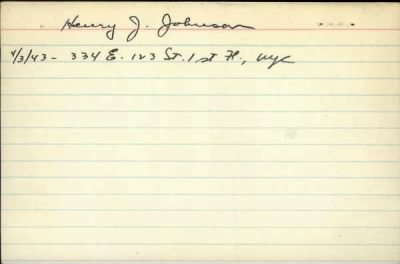 Henry J. Johnson
4/3/43- 334 E. 123 St. 1st Fl., NYC